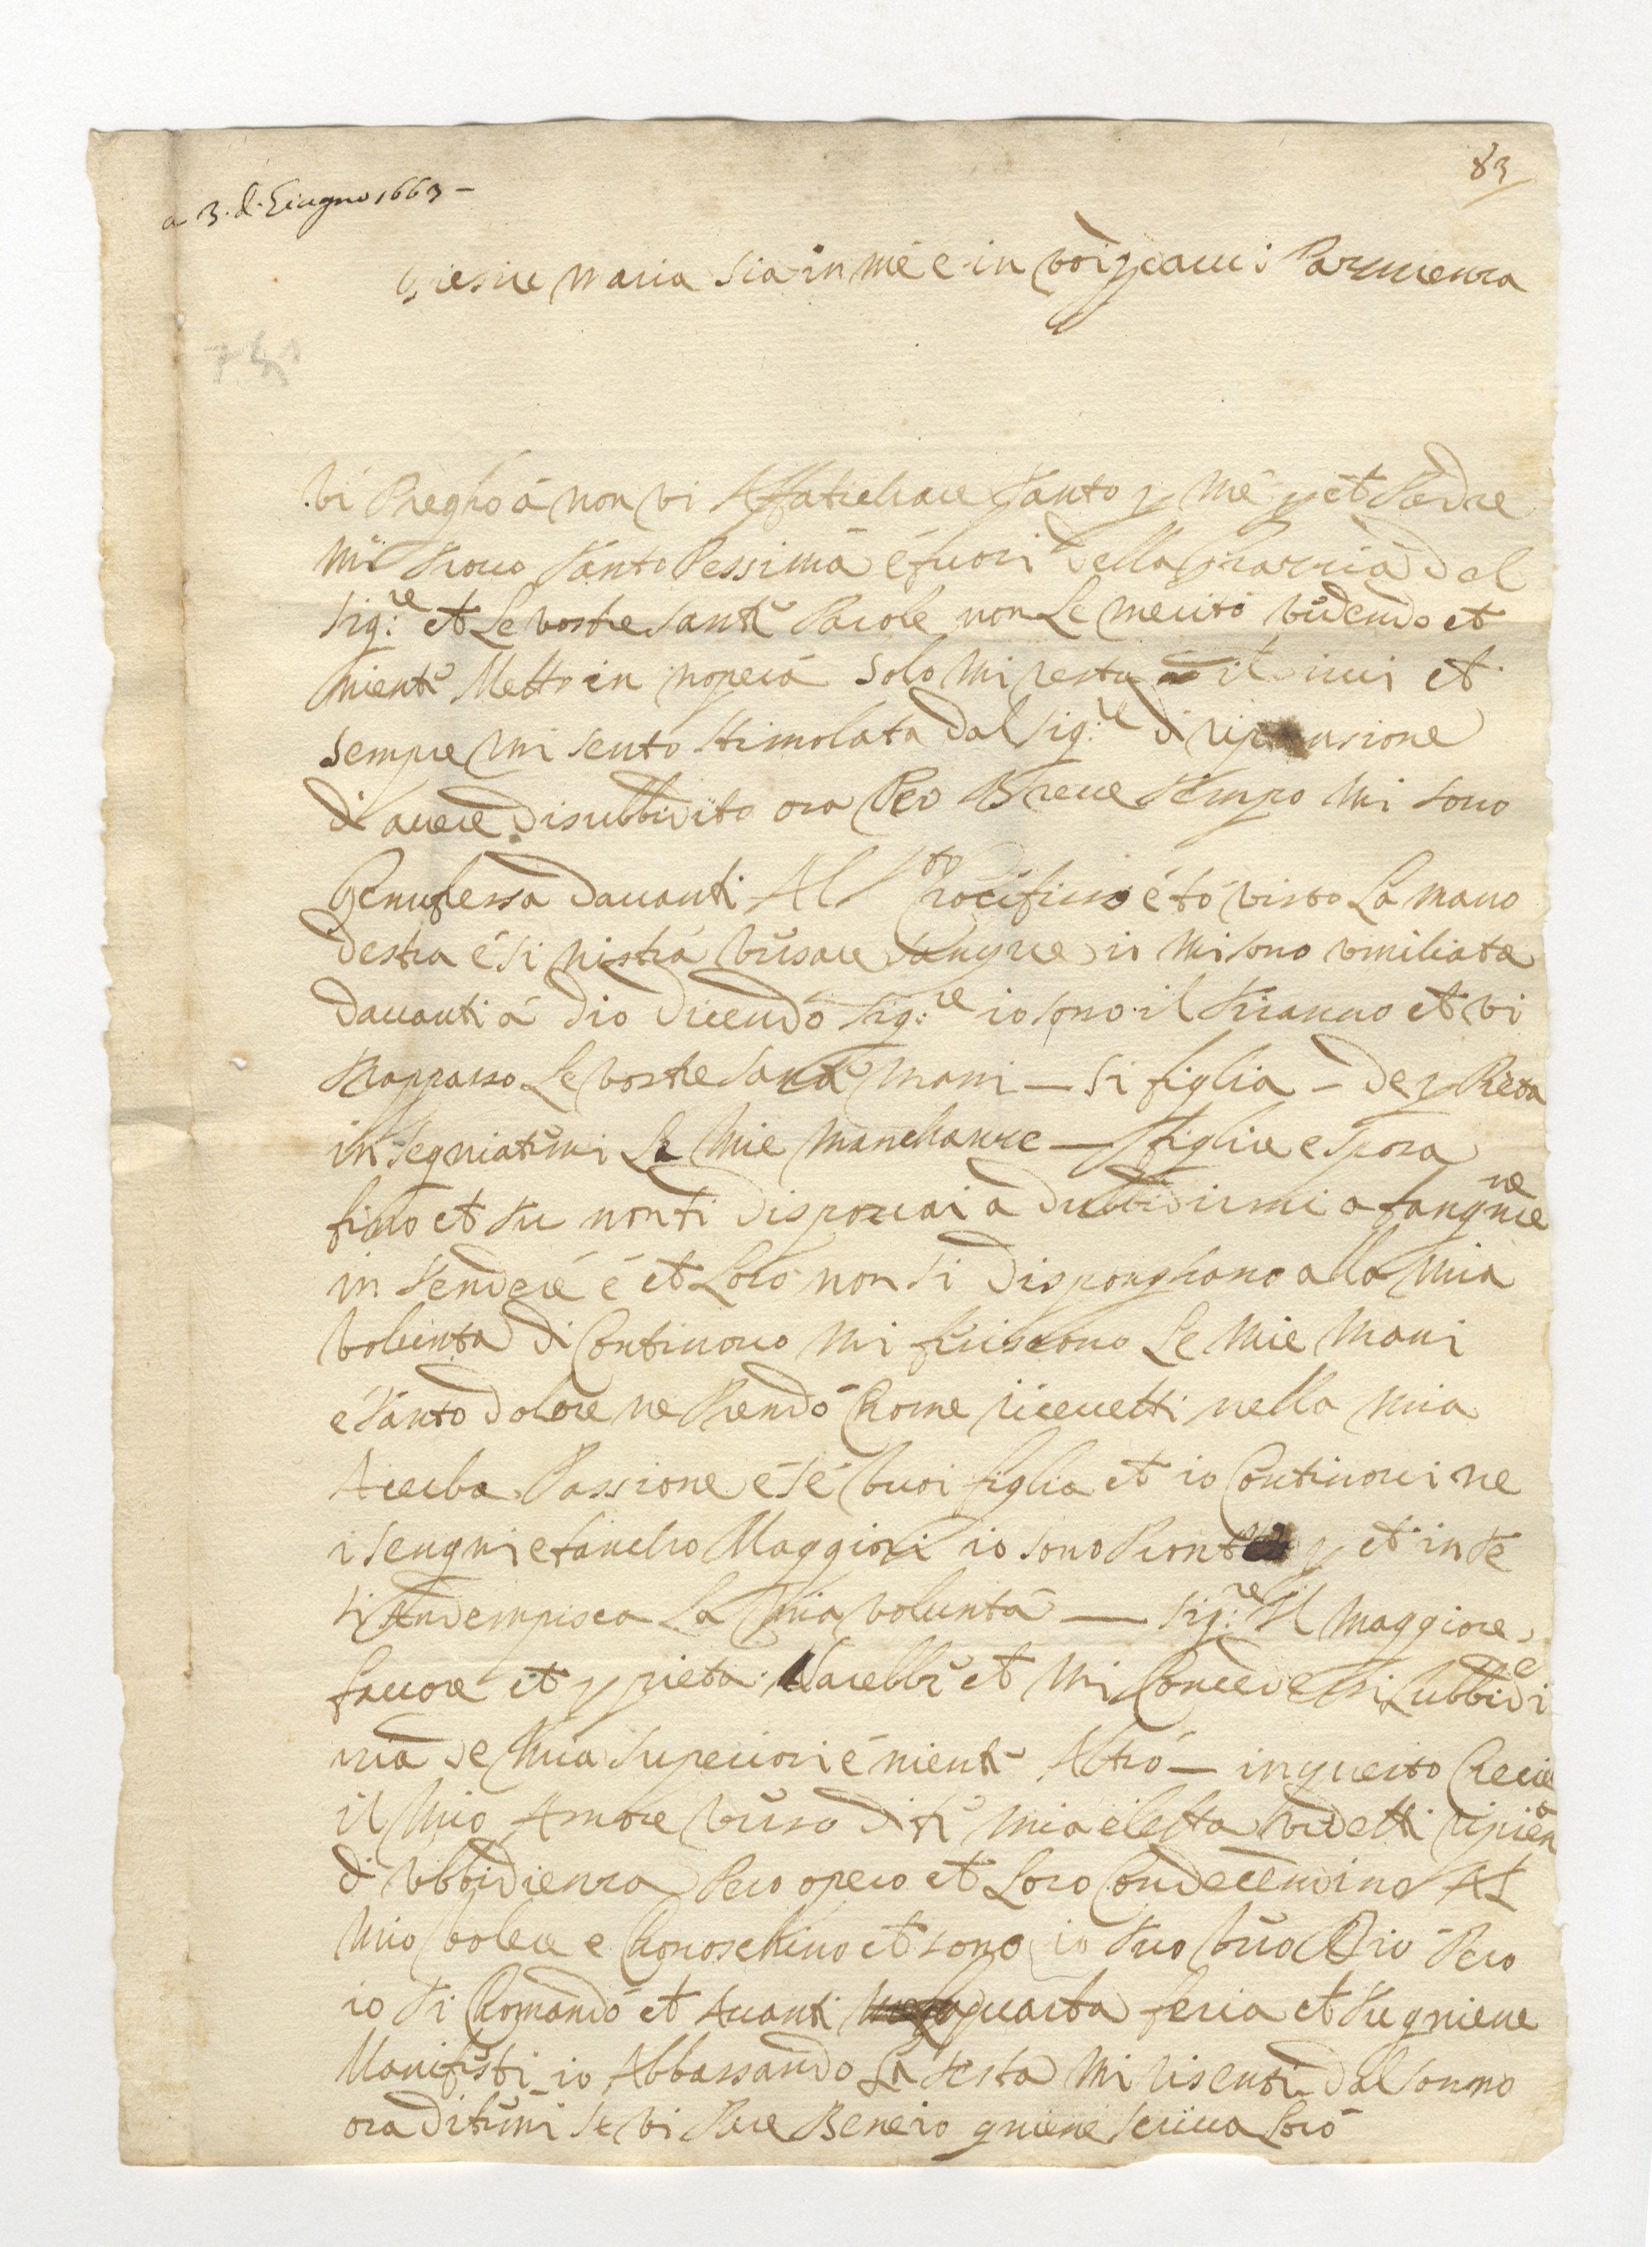 83
a 3. di Giugno 1663 –
Giesue maria sia in me e in voi
vi Pregho á non vi Affatichare tanto p me p et Padre
mi trovo tánto Pessima é fuori della Grazzia del
Sig:re et Le vostre Santi Parole non Le merito videndo et
nienti Metto in nopera solo mi resta il et
sempre mi sento stimolata dal Sig:re di
di avere disubbidito ora Per Breve tempo mi sono
Genuflessa davanti Al Sto Crocifisso é tó visto La mano
destra é sinistra virsare sangue io mi sono vmiliata
davanti á Dio dicendo Sig:re io sono il tiranno et vi
trappasso Le vostre Santi mani – si figlia – de p Pietà
insegniatimi Le mie manchanze – figlia e sposa
fino et tu non ti disporrai a dubbidirmi a
in tendere é et Loro non si disponghano alla mia
volunta di Continovo mi feriscono Le mie mani
e tánto dolore ne Prendó Chome ricevetti nella mia
Acerba Passione é sé vuoi figlia et io Continovi ne
i sengni e fancho Maggiori io sono Pronto p et in te
si Andempisca La mia voluntá — Sig:re Il maggiore
favore et p pietà Sarebbi et mi Concedessi Lubbidie
nza de mia superiori é nienti Altró – in questo Crecie
il mio Amore virso di ti mia eletta videtti ripiena
di vbbidienza Pero opero et Loro Condecendino Al
mio volere e Chonoschino et sono io tuo viro Dio Pero
io ti Chomandó et Avanti quarta feria et tu gniene
Manifisti io Abbassando La testa mi risenti dal sonno
ora ditimi se vi Pare Bene io gniene scriva Loró